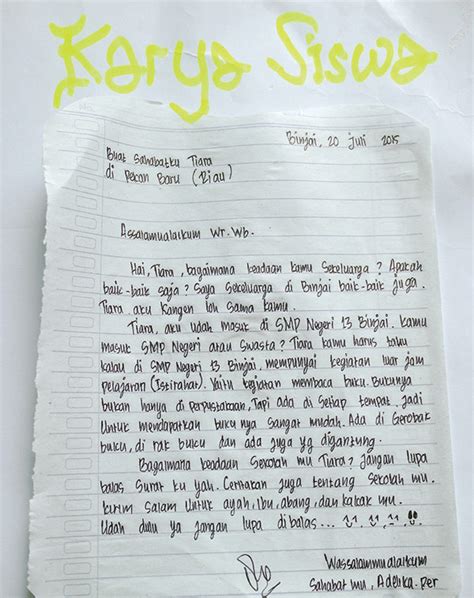 Karya Siswa
Binjai, 20 Juli 2015
Buat Sahabatku Tiara
di Pekan Baru (Riau)
Assalamualaikum Wr. Wb.
Hai, Tiara, bagaimana keadaan kamu Sekeluarga? Apakah
baik-baik saja? Saya Sekeluarga di Binjai baik-baik juga.
Tiara aku kangen loh sama kamu.
Tiara, aku udah masuk di SMP Negeri 13 Binjai. kamu
masuk SMP Negeri atau Swasta? Tiara kamu harus tahu
kalau di SMP Negri 13 Binjai, mempunyai kegiatan luar jam
pelajaran (Istirahat). Yaitu kegiatan membaca buku. Bukunya
bukan hanya di perpustakaan, Tapi ada di Setiap tempat. Jadi
Untuk mendapatkan buku nya sangat mudah. Ada di Gerobak
buku, di rak buku dan ada juga yg digantung.
Bagaimana keadaan Sekolah mu Tiara? Jangan lupa
balas Surat ku yah. Ceritakan juga tentang sekolah mu.
kirim Salam Untuk ayah, Ibu, abang, dan kakak mu.
Udah dulu ya jangan lupa di balas...
Wassalammualaikum
Sahabat mu, Adelika. Per